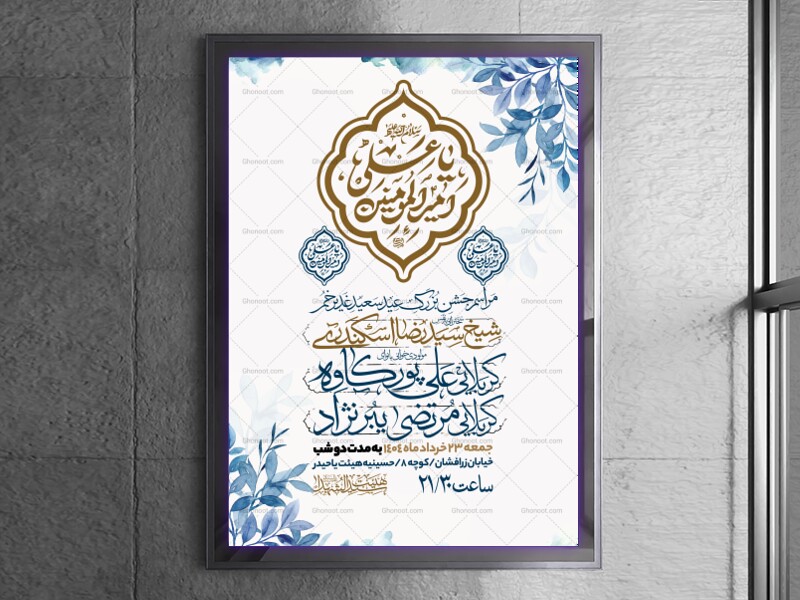 سلام الله علیه
یا علی
امیرالمومنین
مراسم جشن بزرگ عید سعید غدیر خم
سخنرانی
شیخ سیدرضا اسکندری
مولودی خوانی با نوای
کربلایی علی پورکاوه
کربلایی مرتضی ببرنژاد
جمعه ۲۳ خرداد ماه ۱۴۰۴ به مدت دو شب
خیابان زرافشان / کوچه ۸ / حسینیه هیئت یا حیدر
ساعت ۲۱/۳۰
Ghonoot.com